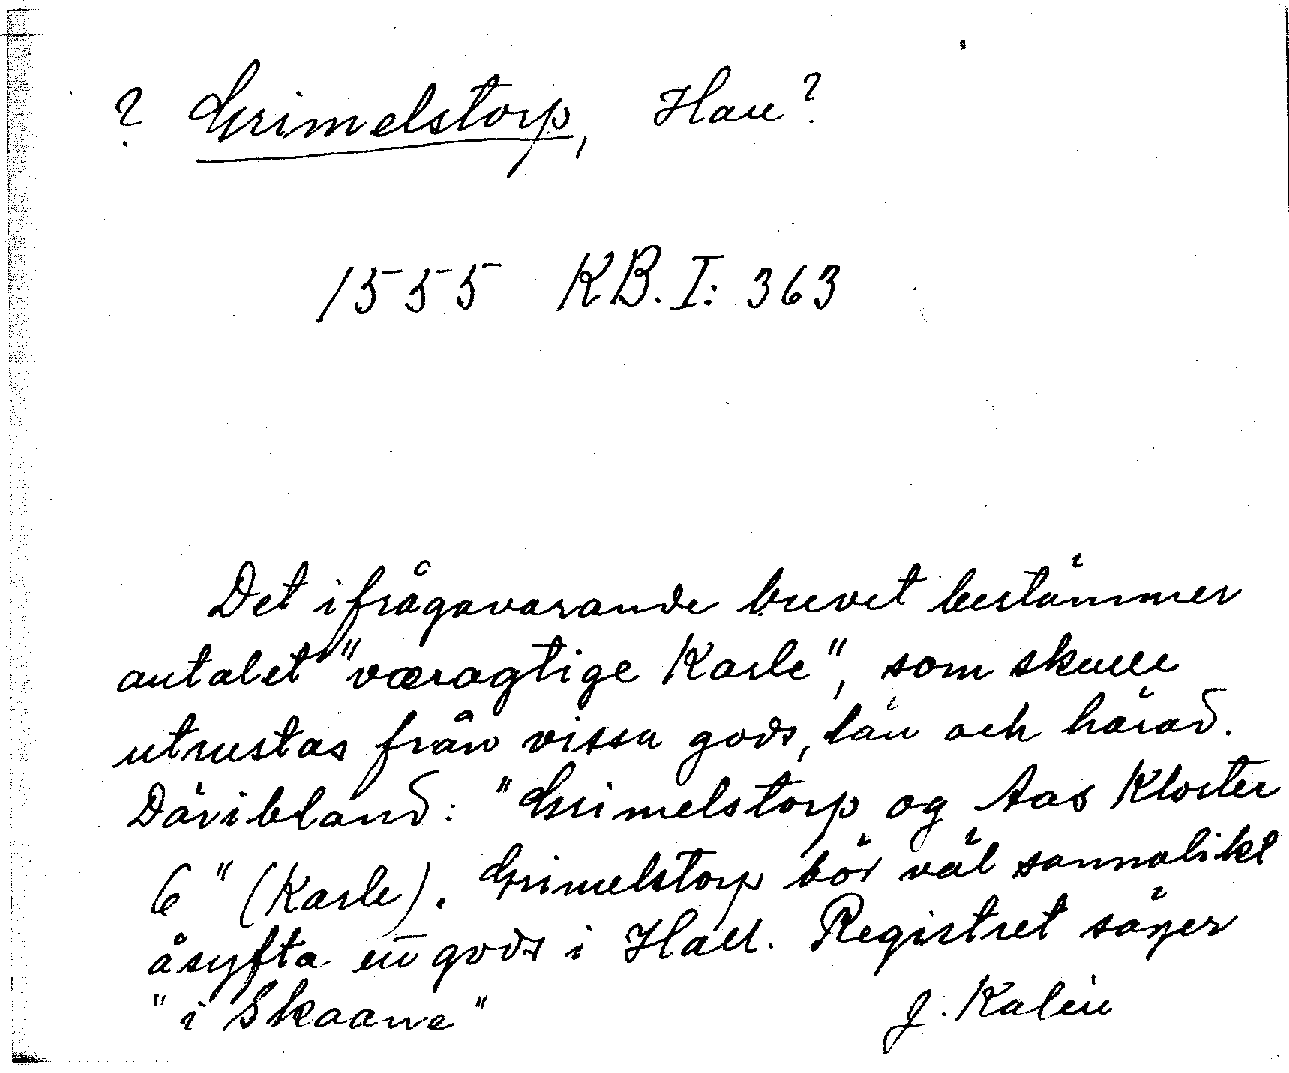 ? Grimelstorp, Hall?
1555 KB. I: 363
Det ifrågavarande brevet bestämmer
antalet "væragtige Karle", som skulle
utrustas från vissa gods, län och härad.
Däribland: "Grimelstorp og Aas Kloster
6" (Karle). Grimelstorp bör väl sannolikt
åsyfta en gods i Hall. Registret säger
"i Skaane" J. Kalén